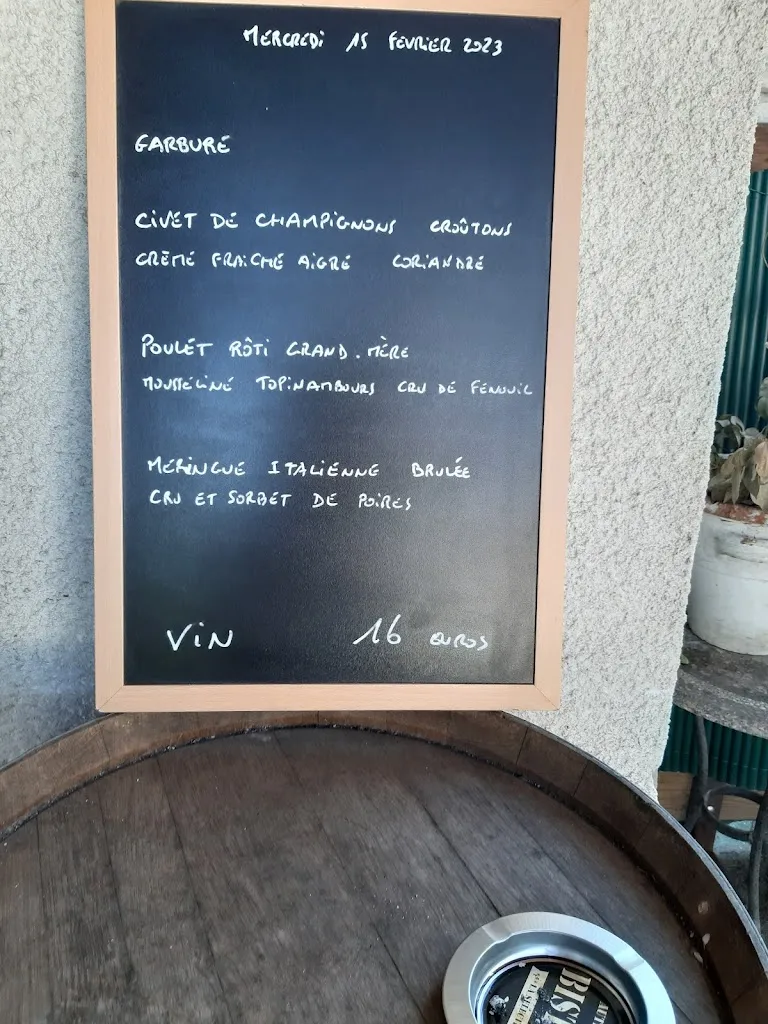 MERCREDI 15 FEVRIER 2023
GARBURE
CIVET DE CHAMPIGNONS CROÛTONS
CRÈME FRAICHE AIGRE CORIANDRE
POULET RÔTI GRAND.MÈRE
MOUSSELINE TOPINAMBOURS CRU DE FENOUIL
MERINGUE ITALIENNE BRULÉE
CRU ET SORBET DE POIRES
VIN 16 EUROS